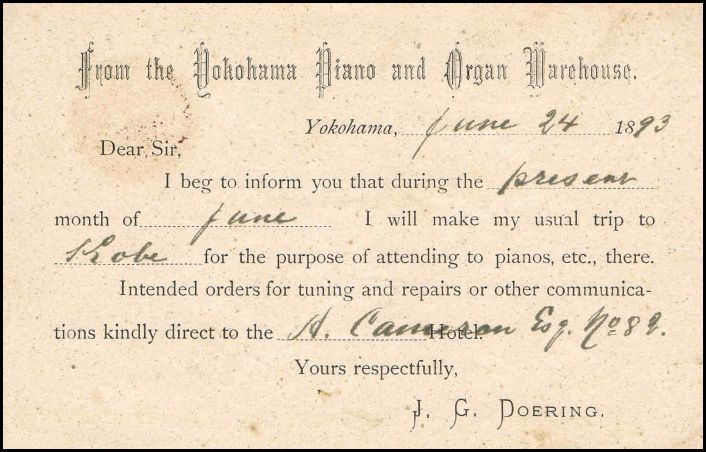 From the Yokohama Piano and Organ Warehouse.
Yokohama, June 24 1893
Dear Sir,
I beg to inform you that during the present
month of June I will make my usual trip to
Kobe for the purpose of attending to pianos, etc., there.
Intended orders for tuning and repairs or other communica-
tions kindly direct to the A. Cameron Esq. No 89. Hotel.
Yours respectfully,
J. G. DOERING.